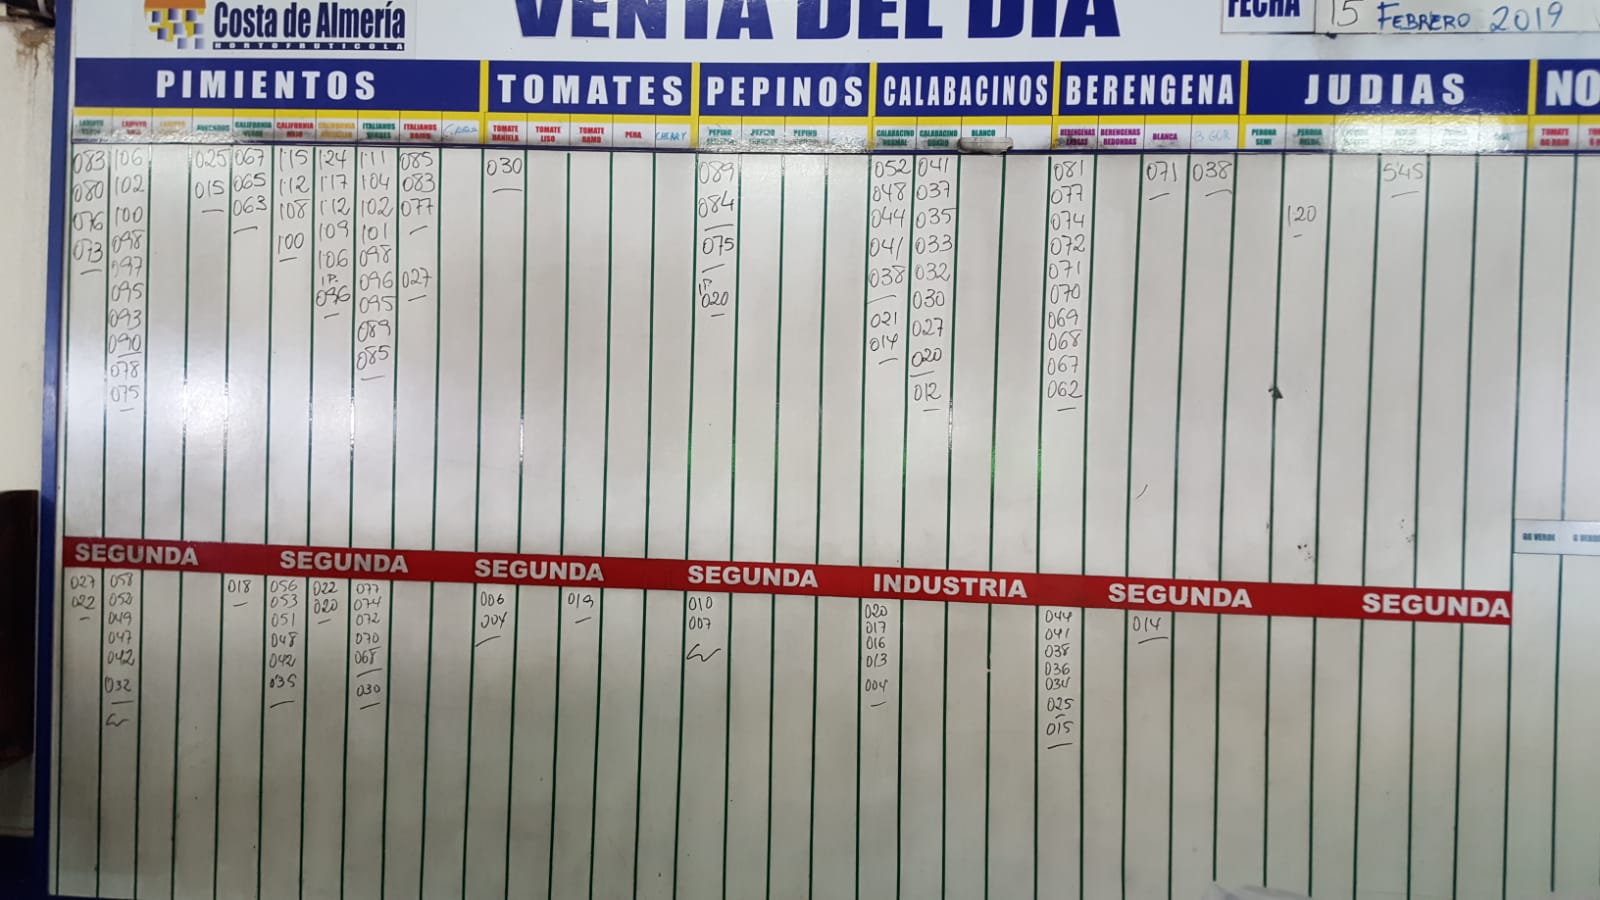 Costa de Almería
HORTOFRUTICOLA
VENTA DEL DIA
FECHA 15 FEBRERO 2019
PIMIENTOS TOMATES PEPINOS CALABACINOS BERENGENA JUDIAS NO
CALIFORNIA VERDE CALIFORNIA ROJO ITALIANOS VERDES ITALIANOS ROJOS TOMATE DANIELA TOMATE LISO TOMATE RAMO PERA CHERRY PEPINO PEPINO CALABACINO NORMAL CALABACINO GORDO BLANCO BERENGENAS LARGAS BERENGENAS REDONDAS BLANCA B GOR PERONA SEMI PERONA TOMATE
083 106 025 067 115 124 111 085 030 089 052 041 081 071 038 545
080 102 015 065 112 117 104 083 084 048 037 077
076 100 063 108 112 102 077 075 044 035 074 120
073 098 100 109 101 041 033 072
097 106 098 038 032 071
095 1P. 096 027 1P 030 070
093 096 095 020 021 027 069
090 089 014 020 068
078 085 067
075 012 062
SEGUNDA SEGUNDA SEGUNDA SEGUNDA INDUSTRIA SEGUNDA SEGUNDA
027 058 018 056 022 077 006 019 010 020 044 014
022 050 053 020 074 004 007 017 041
049 051 072 016 038
047 048 070 013 036
042 042 068 004 034
032 035 030 025
015